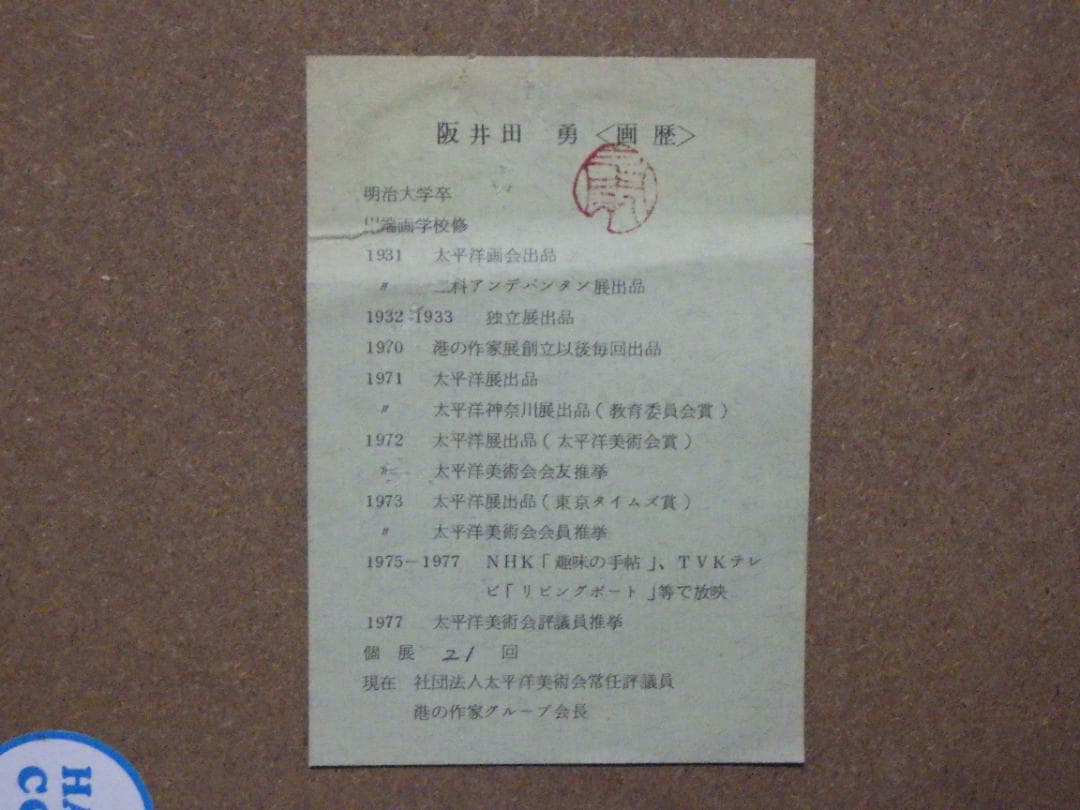 阪井田 勇<画歴>
明治大学卒
川端画学校修
1931 太平洋画会出品
〃 二科アンデパンタン展出品
1932-1933 独立展出品
1970 港の作家展創立以後毎回出品
1971 太平洋展出品
〃 太平洋神奈川展出品(教育委員会賞)
1972 太平洋展出品(太平洋美術会賞)
〃 太平洋美術会会友推挙
1973 太平洋展出品(東京タイムズ賞)
〃 太平洋美術会会員推挙
1975-1977 NHK「趣味の手帖」、TVKテレ
ビ「リビングポート」等で放映
1977 太平洋美術会評議員推挙
個展 21 回
現在 社団法人太平洋美術会常任評議員
港の作家グループ会長